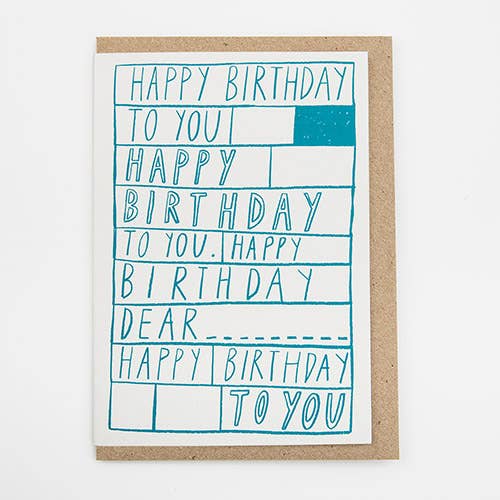 HAPPY BIRTHDAY
TO YOU
HAPPY
BIRTHDAY
TO YOU. HAPPY
BIRTHDAY
DEAR_ _ _ _ _ _ _ _ _
HAPPY BIRTHDAY
TO YOU